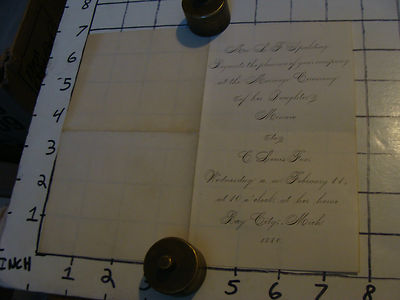 Mrs. S. F. Spalding
Requests the pleasure of your company
at the Marriage Ceremony
of her Daughter
Minnie
to
C. Lewis
Wednesday a.m. February 11,
at 10 o'clock, at her home
Bay City, Mich.
1880.
8
7
6
5
4
3
2
1
INCH 1 2 3 5 6 7 8